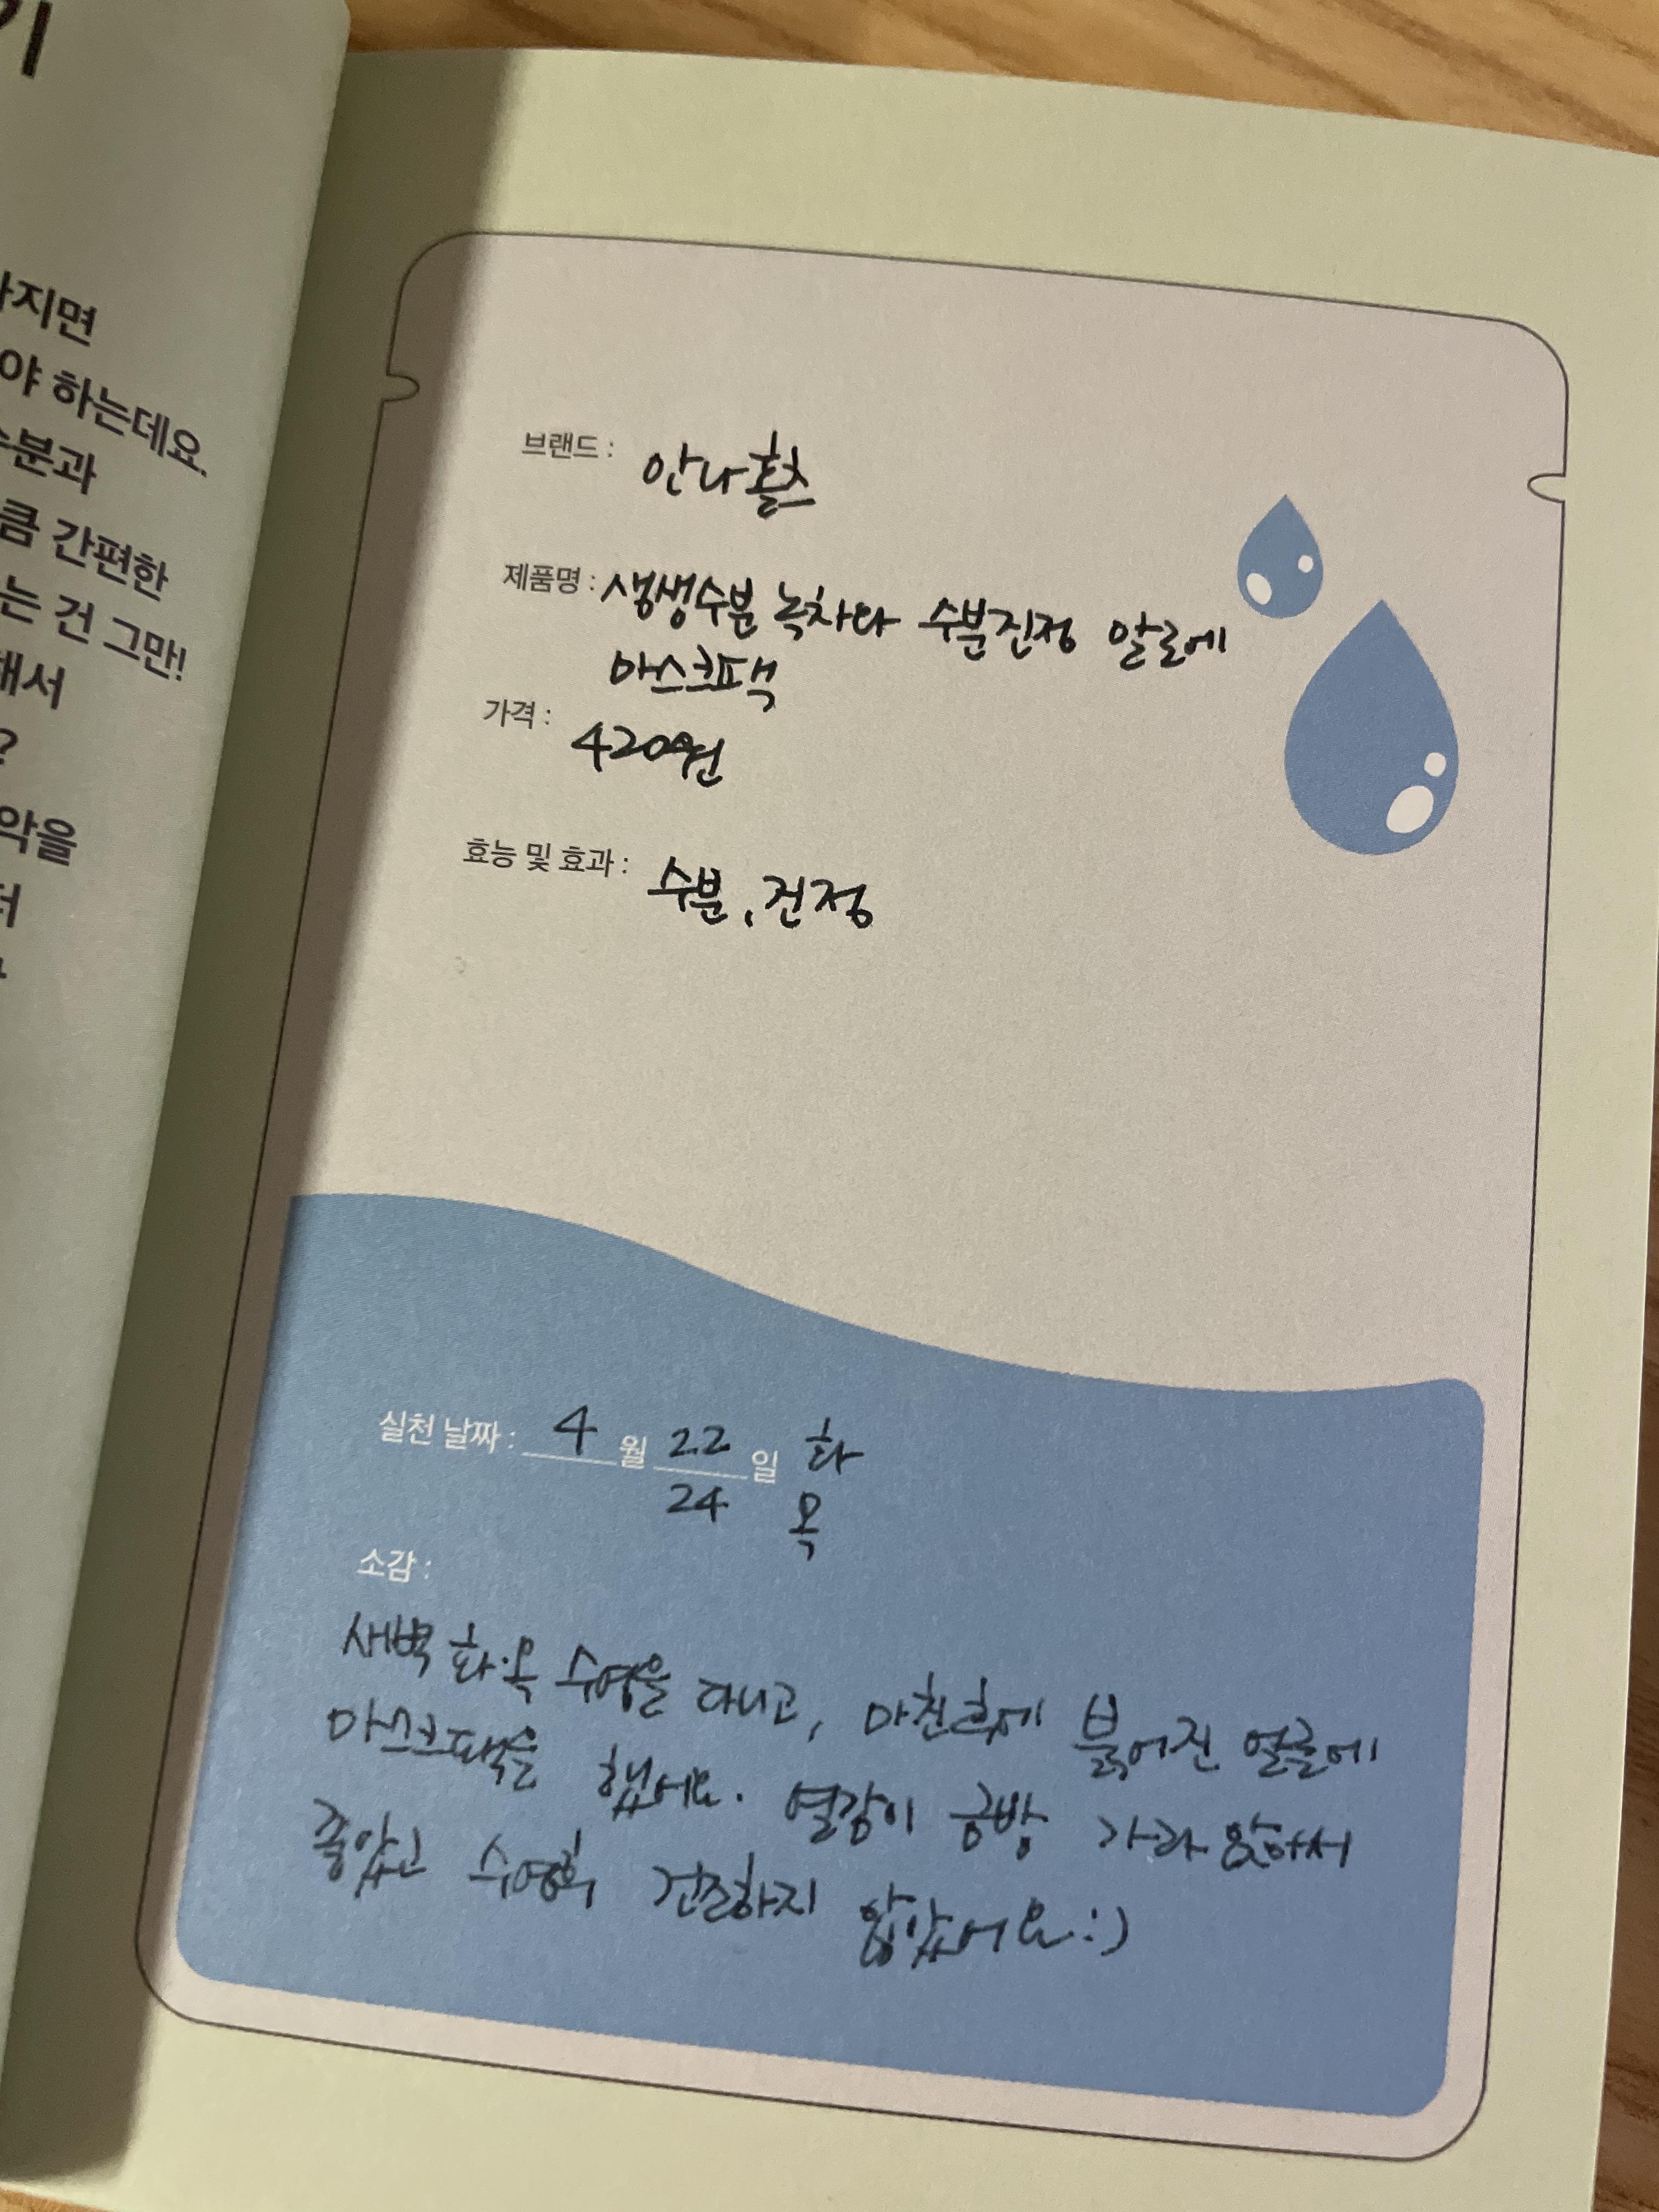 기
지면
야 하는데요.
수분과
큼 간편한
는 건 그만!
해서
?
악을
더
브랜드 : 안나홀츠
제품명 : 생생수분 녹차와 수분진정 알로에
마스크팩
가격 : 420원
효능 및 효과 : 수분, 진정
실천 날짜 : 4 월 22 일 화
24 목
소감 :
새벽 화·목 수영을 다니고, 마친후에 붉어진 얼굴에
마스크팩을 했어요. 열감이 금방 가라앉아서
좋았고 수영후 건조하지 않았어요:)